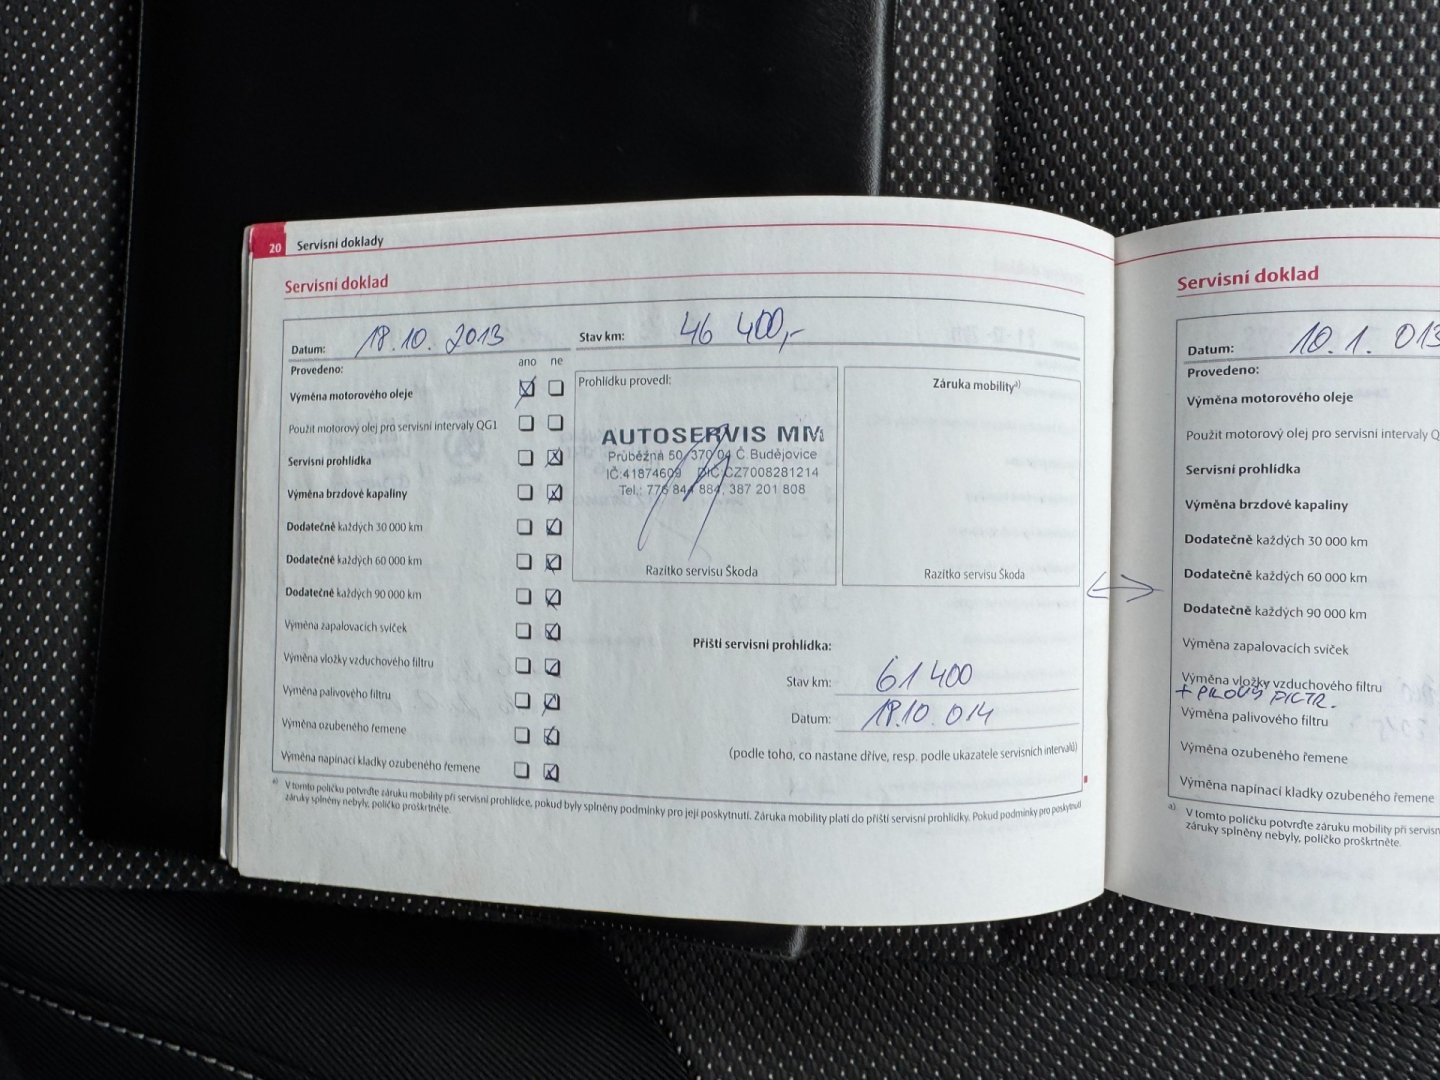 20 Servisní doklady
Servisní doklad
Datum: 18.10. 2013 Stav km: 46 400,-
Provedeno: ano ne
Výměna motorového oleje
Použit motorový olej pro servisní intervaly QG1
Servisní prohlídka
Výměna brzdové kapaliny
Dodatečně každých 30 000 km
Dodatečně každých 60 000 km
Dodatečně každých 90 000 km
Výměna zapalovacích svíček
Výměna vložky vzduchového filtru
Výměna palivového filtru
Výměna ozubeného řemene
Výměna napínací kladky ozubeného řemene
Prohlídku provedl:
AUTOSERVIS MM
Průběžná 50, 370 04 Č Budějovice
IČ:41874609 DIČ:CZ7008281214
Tel.: 776 844 884, 387 201 808
Razítko servisu Škoda
Záruka mobility a)
Razítko servisu Škoda
Příští servisní prohlídka:
Stav km: 61 400
Datum: 18.10. 014
(podle toho, co nastane dříve, resp. podle ukazatele servisních intervalů)
a) V tomto políčku potvrďte záruku mobility při servisní prohlídce, pokud byly splněny podmínky pro její poskytnutí. Záruka mobility platí do příští servisní prohlídky. Pokud podmínky pro poskytnutí
záruky splněny nebyly, políčko proškrtněte.
Servisní doklad
Datum: 10. 1. 013
Provedeno:
Výměna motorového oleje
Použit motorový olej pro servisní intervaly Q
Servisní prohlídka
Výměna brzdové kapaliny
Dodatečně každých 30 000 km
Dodatečně každých 60 000 km
Dodatečně každých 90 000 km
Výměna zapalovacích svíček
Výměna vložky vzduchového filtru
Výměna palivového filtru
Výměna ozubeného řemene
Výměna napínací kladky ozubeného řemene
a) V tomto políčku potvrďte záruku mobility při servisn
záruky splněny nebyly, políčko proškrtněte.